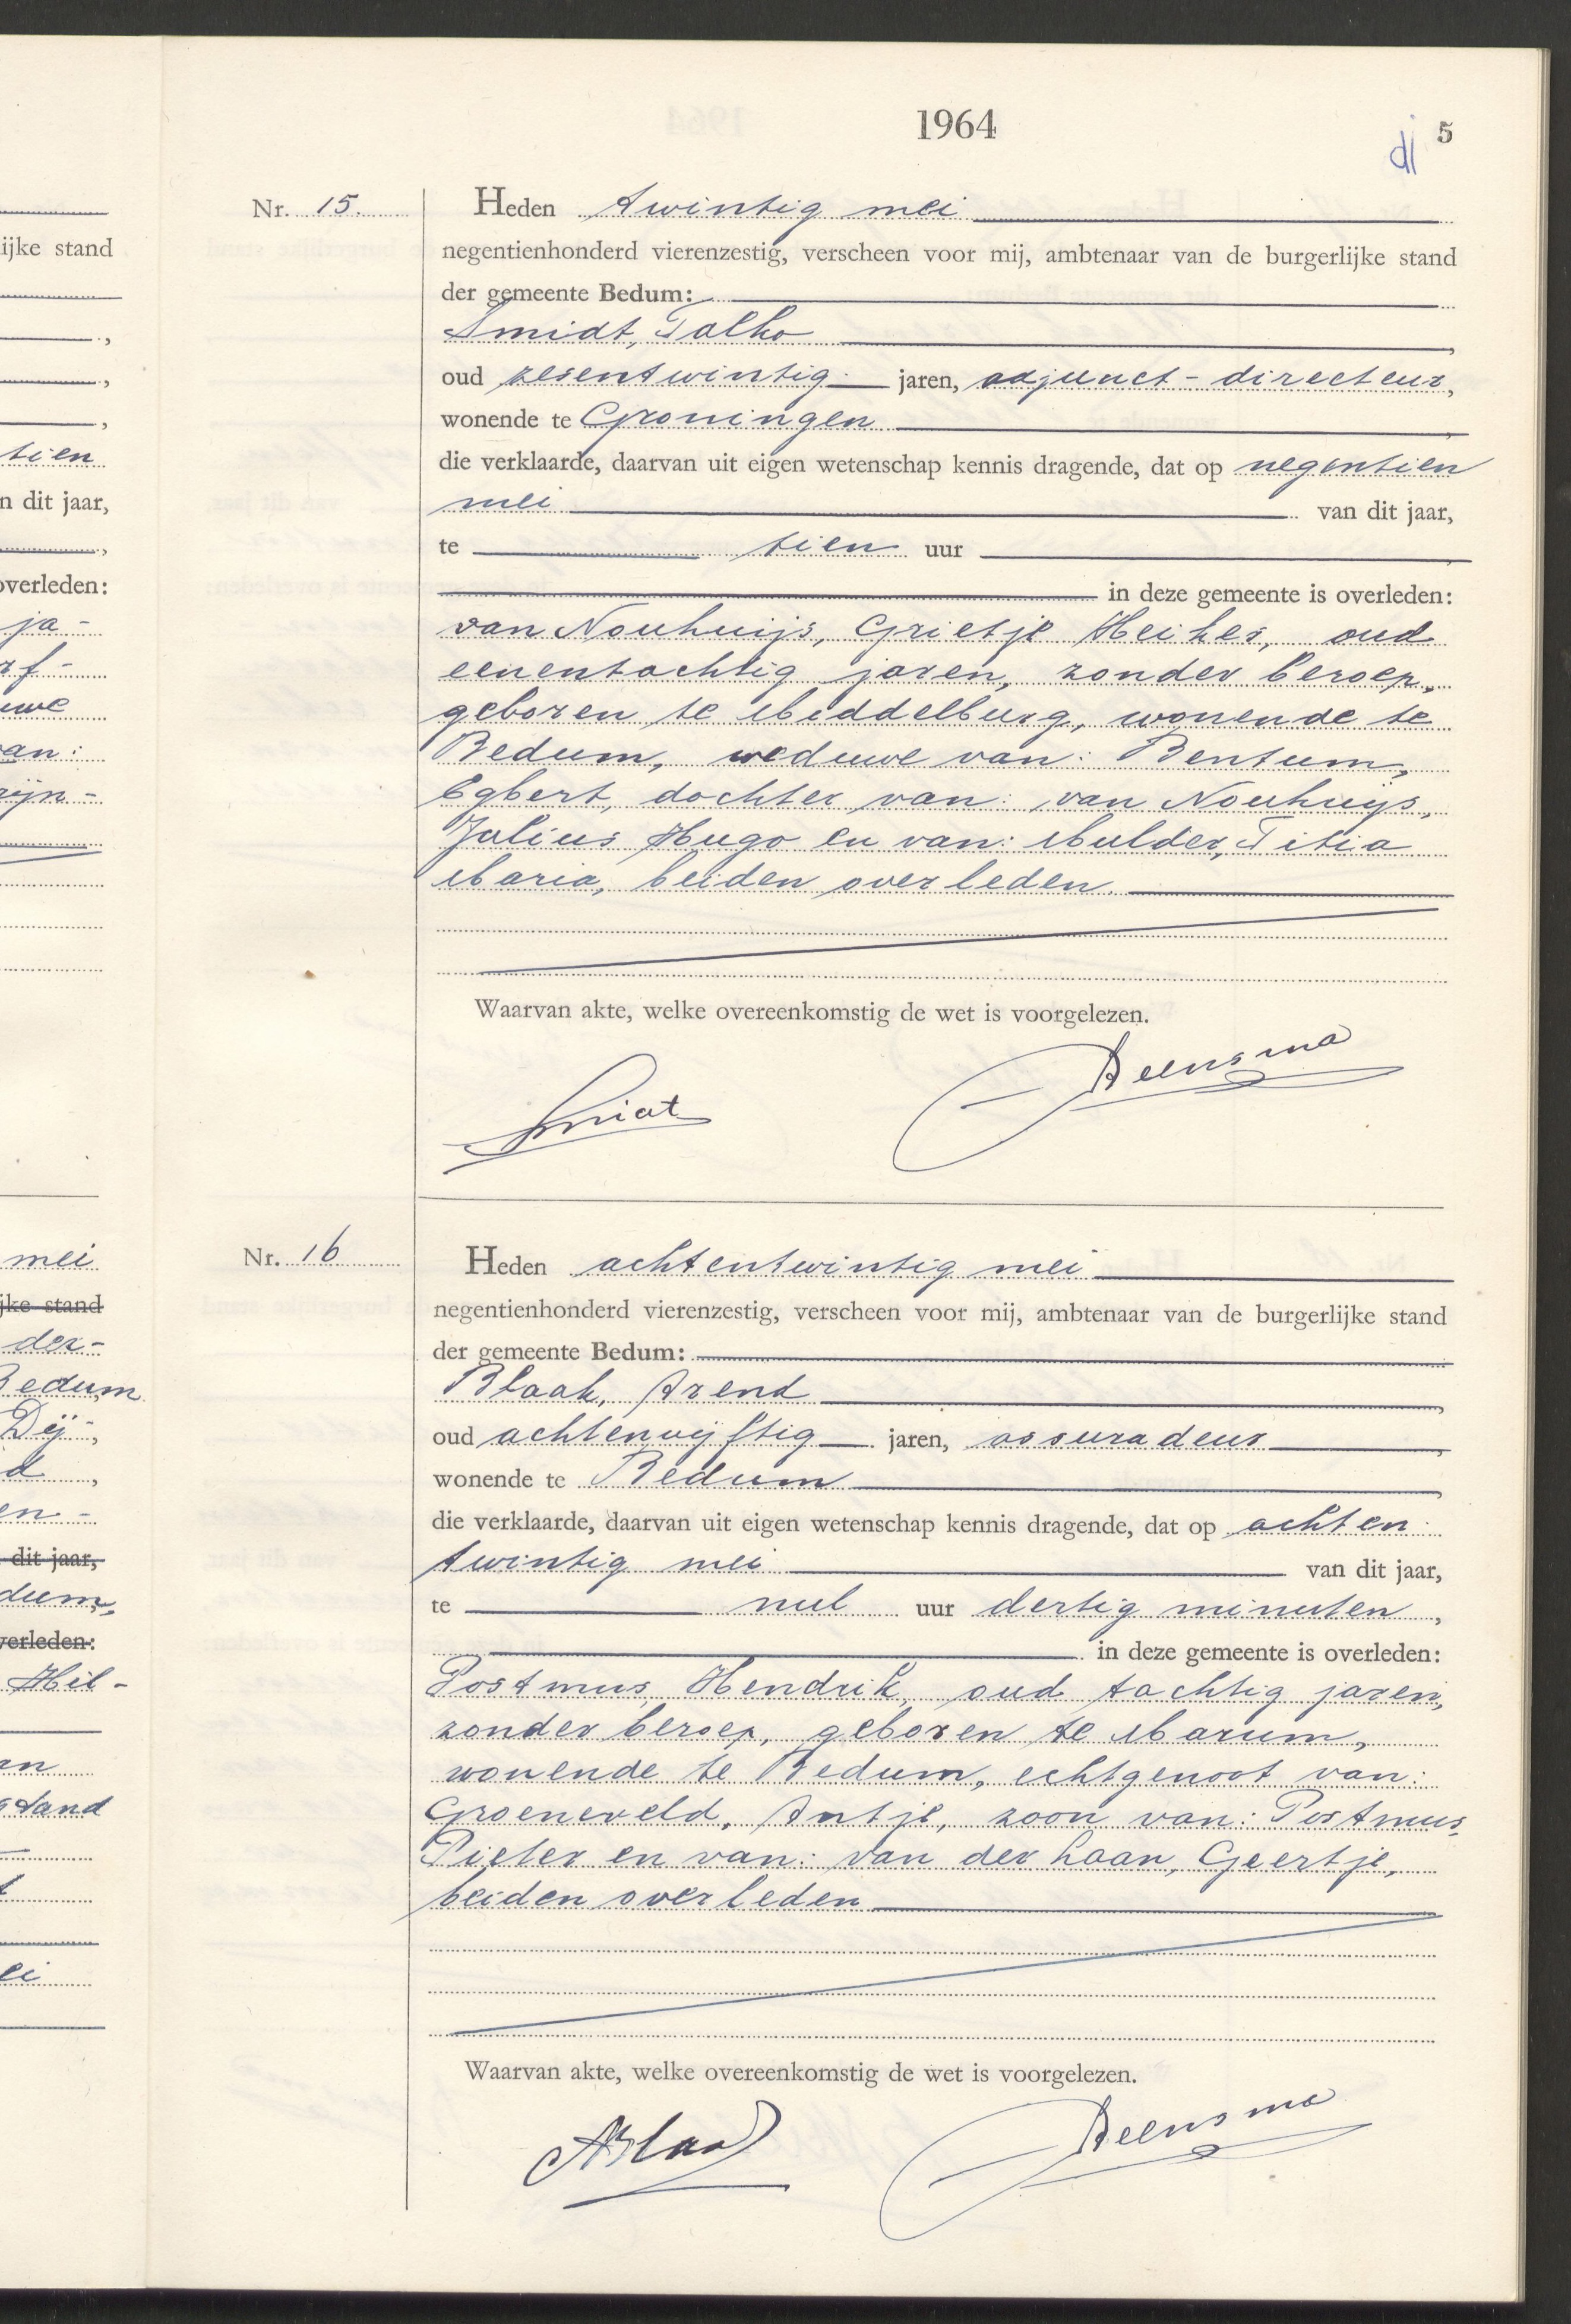 1964
5
dj
Nr. 15.
Heden twintig mei
negentienhonderd vierenzestig, verscheen voor mij, ambtenaar van de burgerlijke stand
der gemeente Bedum:
Smidt, Talko
oud zesentwintig jaren, adjunct-directeur,
wonende te Groningen
die verklaarde, daarvan uit eigen wetenschap kennis dragende, dat op negentien
mei van dit jaar,
te tien uur
in deze gemeente is overleden:
van Nouhuijs, Grietje Heikes, oud
eenentachtig jaren, zonder beroep,
geboren te Middelburg, wonende te
Bedum, weduwe van: Bentum,
Egbert, dochter van: van Nouhuijs,
Julius Hugo en van: Mulder, Titia
Maria, beiden overleden.
Waarvan akte, welke overeenkomstig de wet is voorgelezen.
Smidt
Deensma
Nr. 16
Heden achtentwintig mei
negentienhonderd vierenzestig, verscheen voor mij, ambtenaar van de burgerlijke stand
der gemeente Bedum:
Blaak, Arend
oud achtenvijftig jaren, assuradeur
wonende te Bedum
die verklaarde, daarvan uit eigen wetenschap kennis dragende, dat op achten
twintig mei van dit jaar,
te nul uur dertig minuten,
in deze gemeente is overleden:
Postmus, Hendrik, oud tachtig jaren,
zonder beroep, geboren te Marum,
wonende te Bedum, echtgenoot van:
Groeneveld, Antje, zoon van: Postmus,
Pieter en van: van der Laan, Geertje,
beiden overleden
Waarvan akte, welke overeenkomstig de wet is voorgelezen.
ABlaak
Deensma
ijke stand
tien
n dit jaar,
overleden:
ja-
rf-
uwe
van:
rijn-
mei
jke stand
der-
Bedum
Dij-,
d
en-
dit jaar,
dum,
verleden:
Hil-
an
stand
t
ei